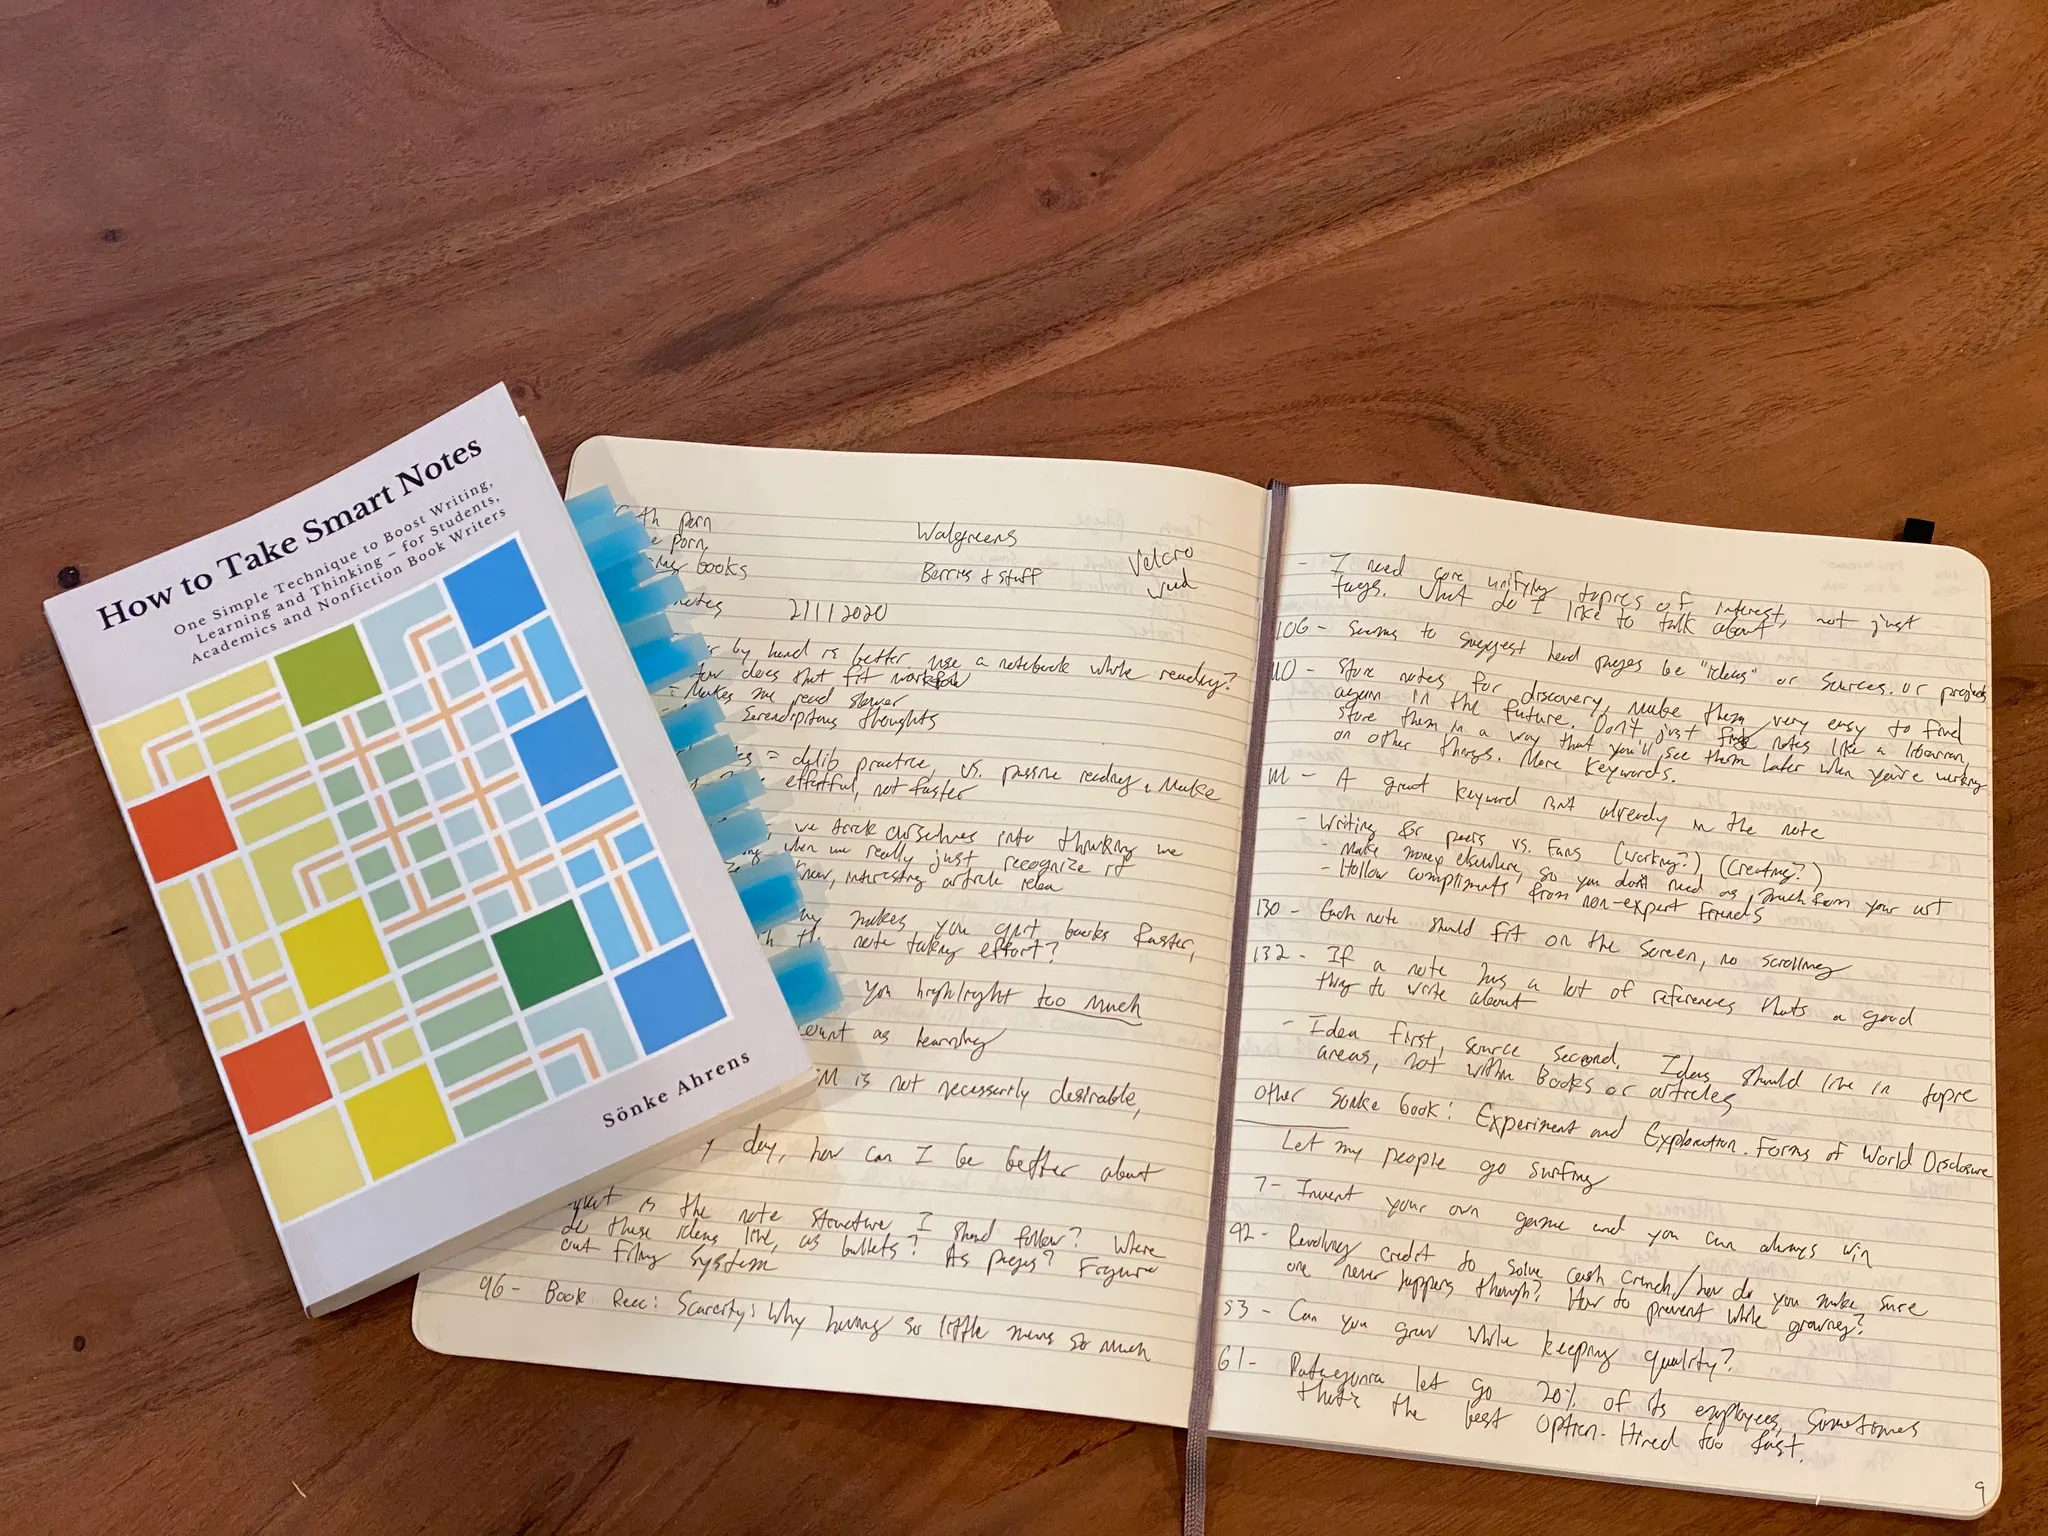 How to Take Smart Notes
One Simple Technique to Boost Writing,
Learning and Thinking – for Students,
Academics and Nonfiction Book Writers
Sönke Ahrens
th porn
e porn
books
Walgreens
Berries & stuff
Velcro
notes 2/1/2020
by hand is better. use a notebook while reading?
How does that fit workflow
- Makes me read slower
Serendipitous thoughts
= delib practice, vs. passive reading. Make
effortful, not faster
we trick ourselves into thinking we
when we really just recognize it
new, interesting article idea
makes you quit books faster,
the note taking effort?
you highlight too much
count as learning
is not necessarily desirable,
y day, how can I be better about
what is the note structure I should follow? Where
do these ideas live, as bullets? As pages? Figure
out filing system
96 - Book Rec: Scarcity: Why having so little means so much
- I need core unifying topics of interest, not just
tags. What do I like to talk about
106 - Seems to suggest head pages be "ideas" or sources. or projects
110 - Store notes for discovery, make them very easy to find
again in the future. Don't just notes like a librarian,
store them in a way that you'll see them later when you're working
on other things. More keywords.
111 - A great keyword isn't already in the note
- Writing for peers vs. Fans (working?) (creating?)
- Make money elsewhere, so you don't need as much from your art
- Hollow compliments from non-expert friends
130 - Each note should fit on the screen, no scrolling
132 - If a note has a lot of references thats a good
thing to write about
- Idea first, source second. Ideas should live in topic
areas, not within Books or articles
other Sonke book: Experiment and Exploration. Forms of World Disclosure
Let my people go surfing
7 - Invent your own game and you can always win
92 - Revolving credit to solve cash crunch/how do you make sure
one never happens though? How to prevent while growing?
53 - Can you grow while keeping quality?
61 - Patagonia let go 20% of its employees, sometimes
that's the best option. Hired too fast.
9